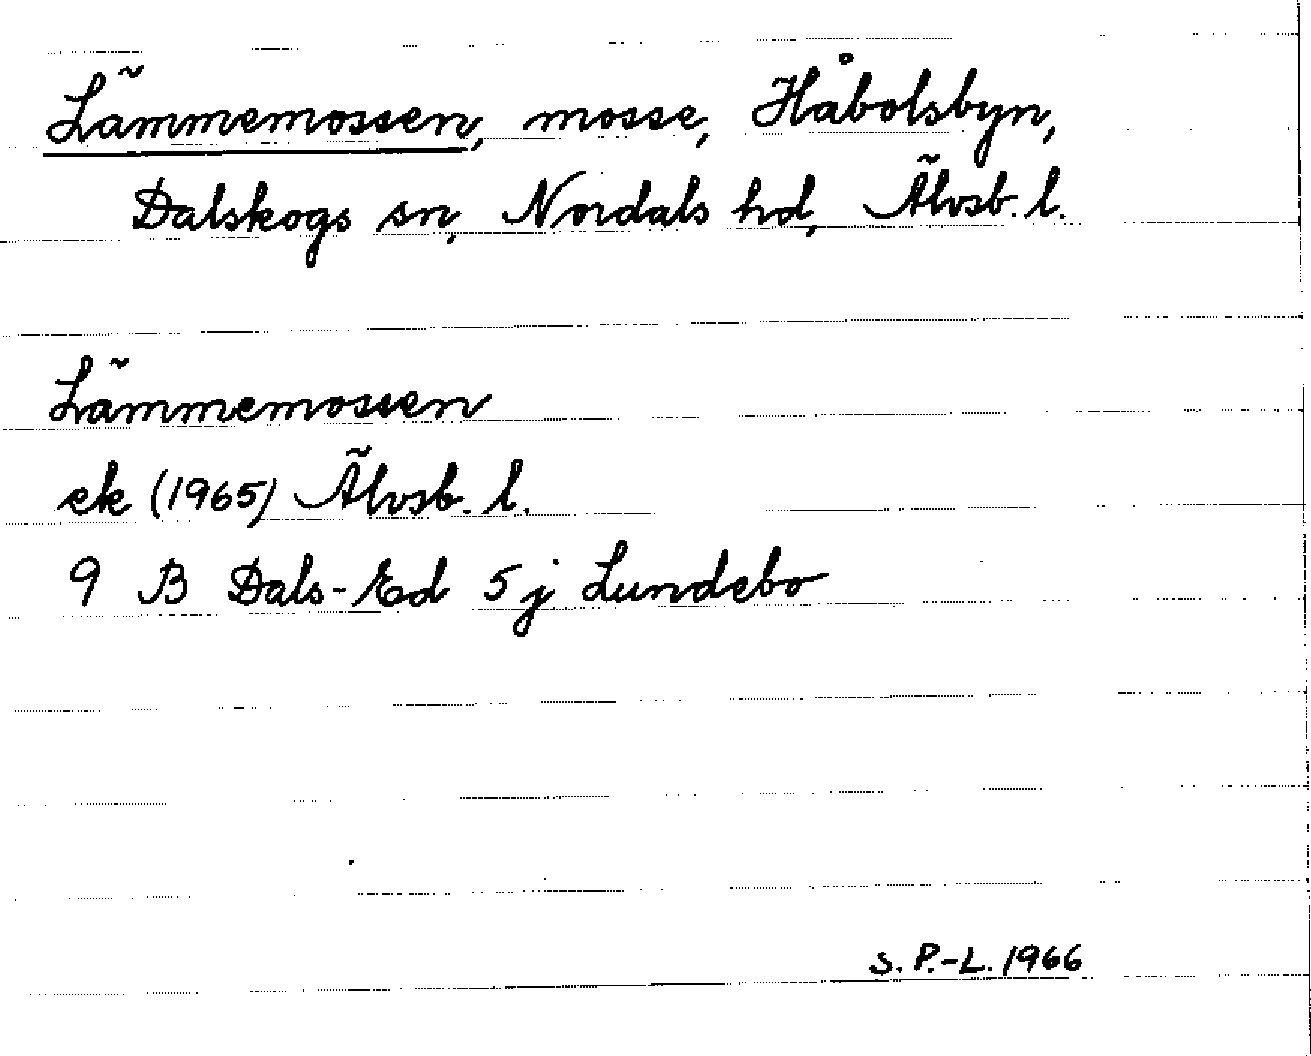 Lämmemossen, mosse, Håbolsbyn,
Dalskogs sn, Nordals hd, Älvsb. l.
Lämmemossen
ek (1965) Älvsb. l.
9 B Dals-Ed 5 j Lundebo
S. P.-L. 1966